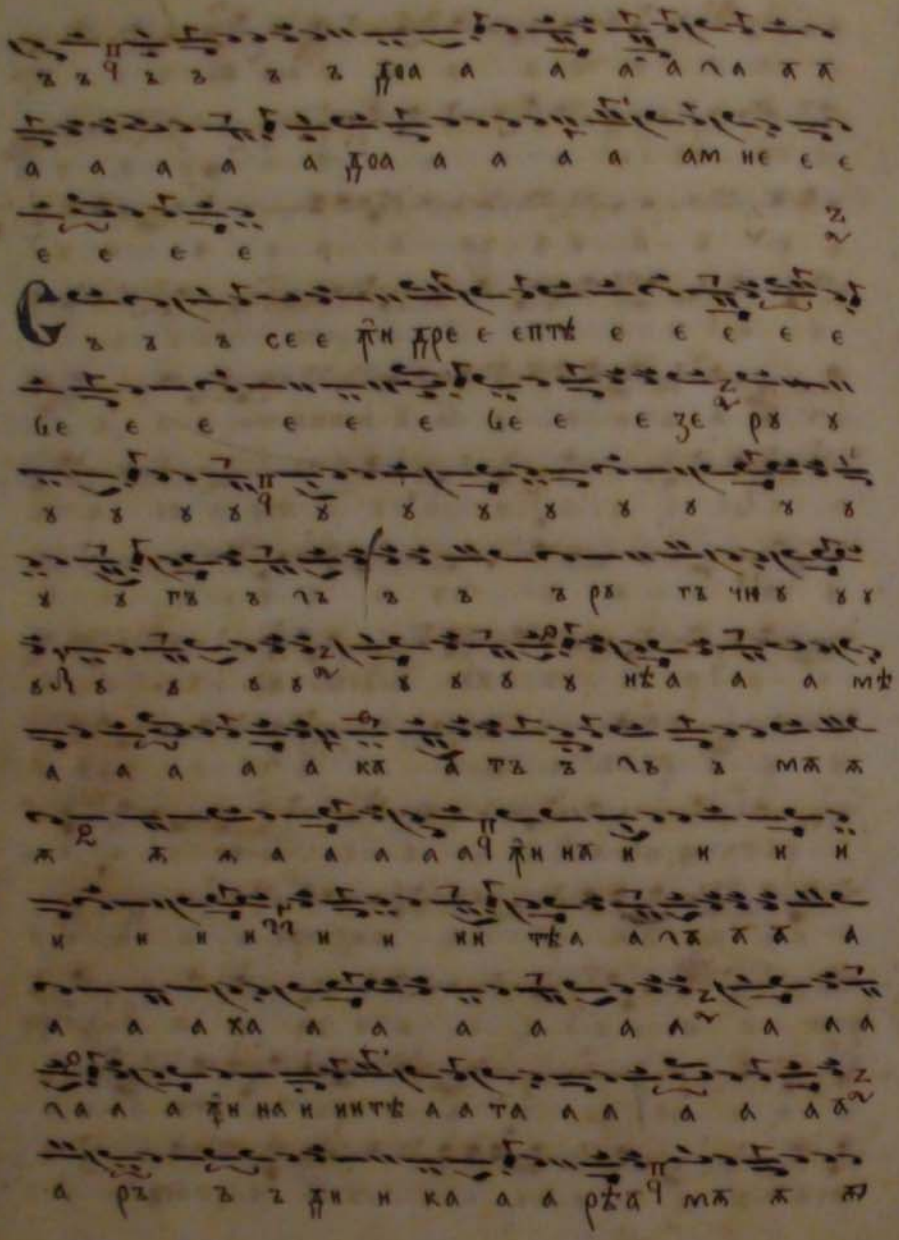 ъ ъ ъ ъ ъ ъ доа а а а а ла а а
а а а а а доа а а а а ам не е е
е е е е
С ъ ъ ъ се е ꙟн дре е ептѣ е е е е е
се е е е е е се е е зе рꙋ ꙋ
ꙋ ꙋ ꙋ ꙋ ꙋ ꙋ ꙋ ꙋ ꙋ ꙋ ꙋ ꙋ
ꙋ ꙋ гъ ъ лъ ъ ъ ъ рꙋ гъ чю ꙋ ꙋ ꙋ
ꙋ ꙋ ꙋ ꙋ ꙋ ꙋ ꙋ ꙋ ꙋ нѣ а а а мѣ
а а а а а ка а тъ ъ лъ ъ мѫ ѫ
ѫ ѫ ѫ а а а а а ꙟн на и и и и
и и и и и и ин тѣ а а ла а а а
а а а ха а а а а а а а а а
ла а а ꙟн на и интѣ а а та а а а а а а
а ръ ъ ъ ди и ка а а рѣ а мѫ ѫ ѫ